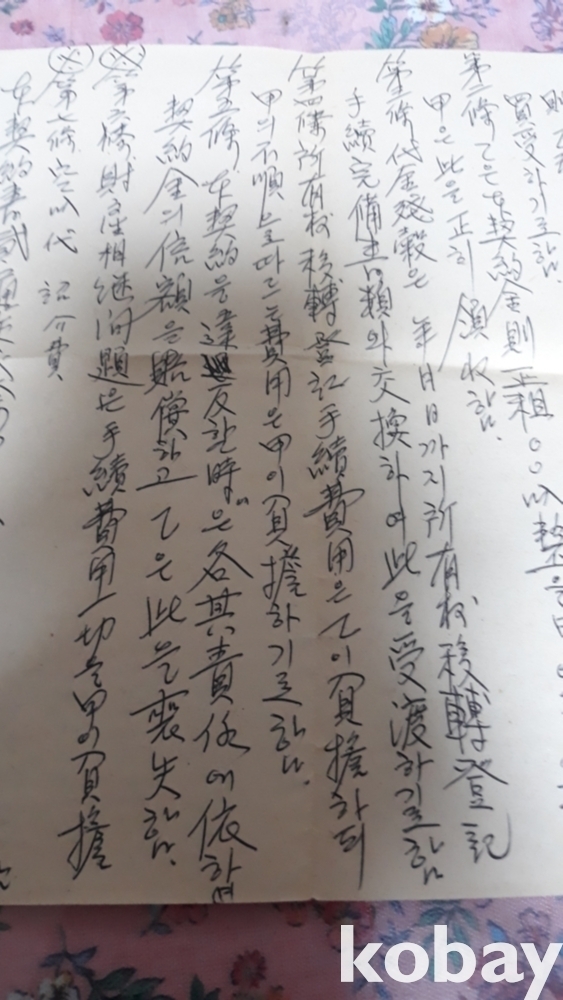 買受하기로함.
第二條 乙은 本契約金則正租 00叺整을 甲에
甲은 此을 正히 領收함.
第三條 代金残穀은 年 月 日까지 所有权移轉登記
手續完備書類와 交換하여 此을 受渡하기로함
第四條 所有权 移轉登記手續費用은 乙이 負擔하되
甲의 不順으로 따르는 費用은 甲이 負擔하기로 함.
第五條 本契約을 違反한時은 各其責任에 依하여
契約金의 倍額을 賠償하고 乙은 此을 喪失함.
第六條 財産相継问題은 手續費用一切을 甲이 負擔
第七條 叺代 紹介費
本契約書貳通
kobay